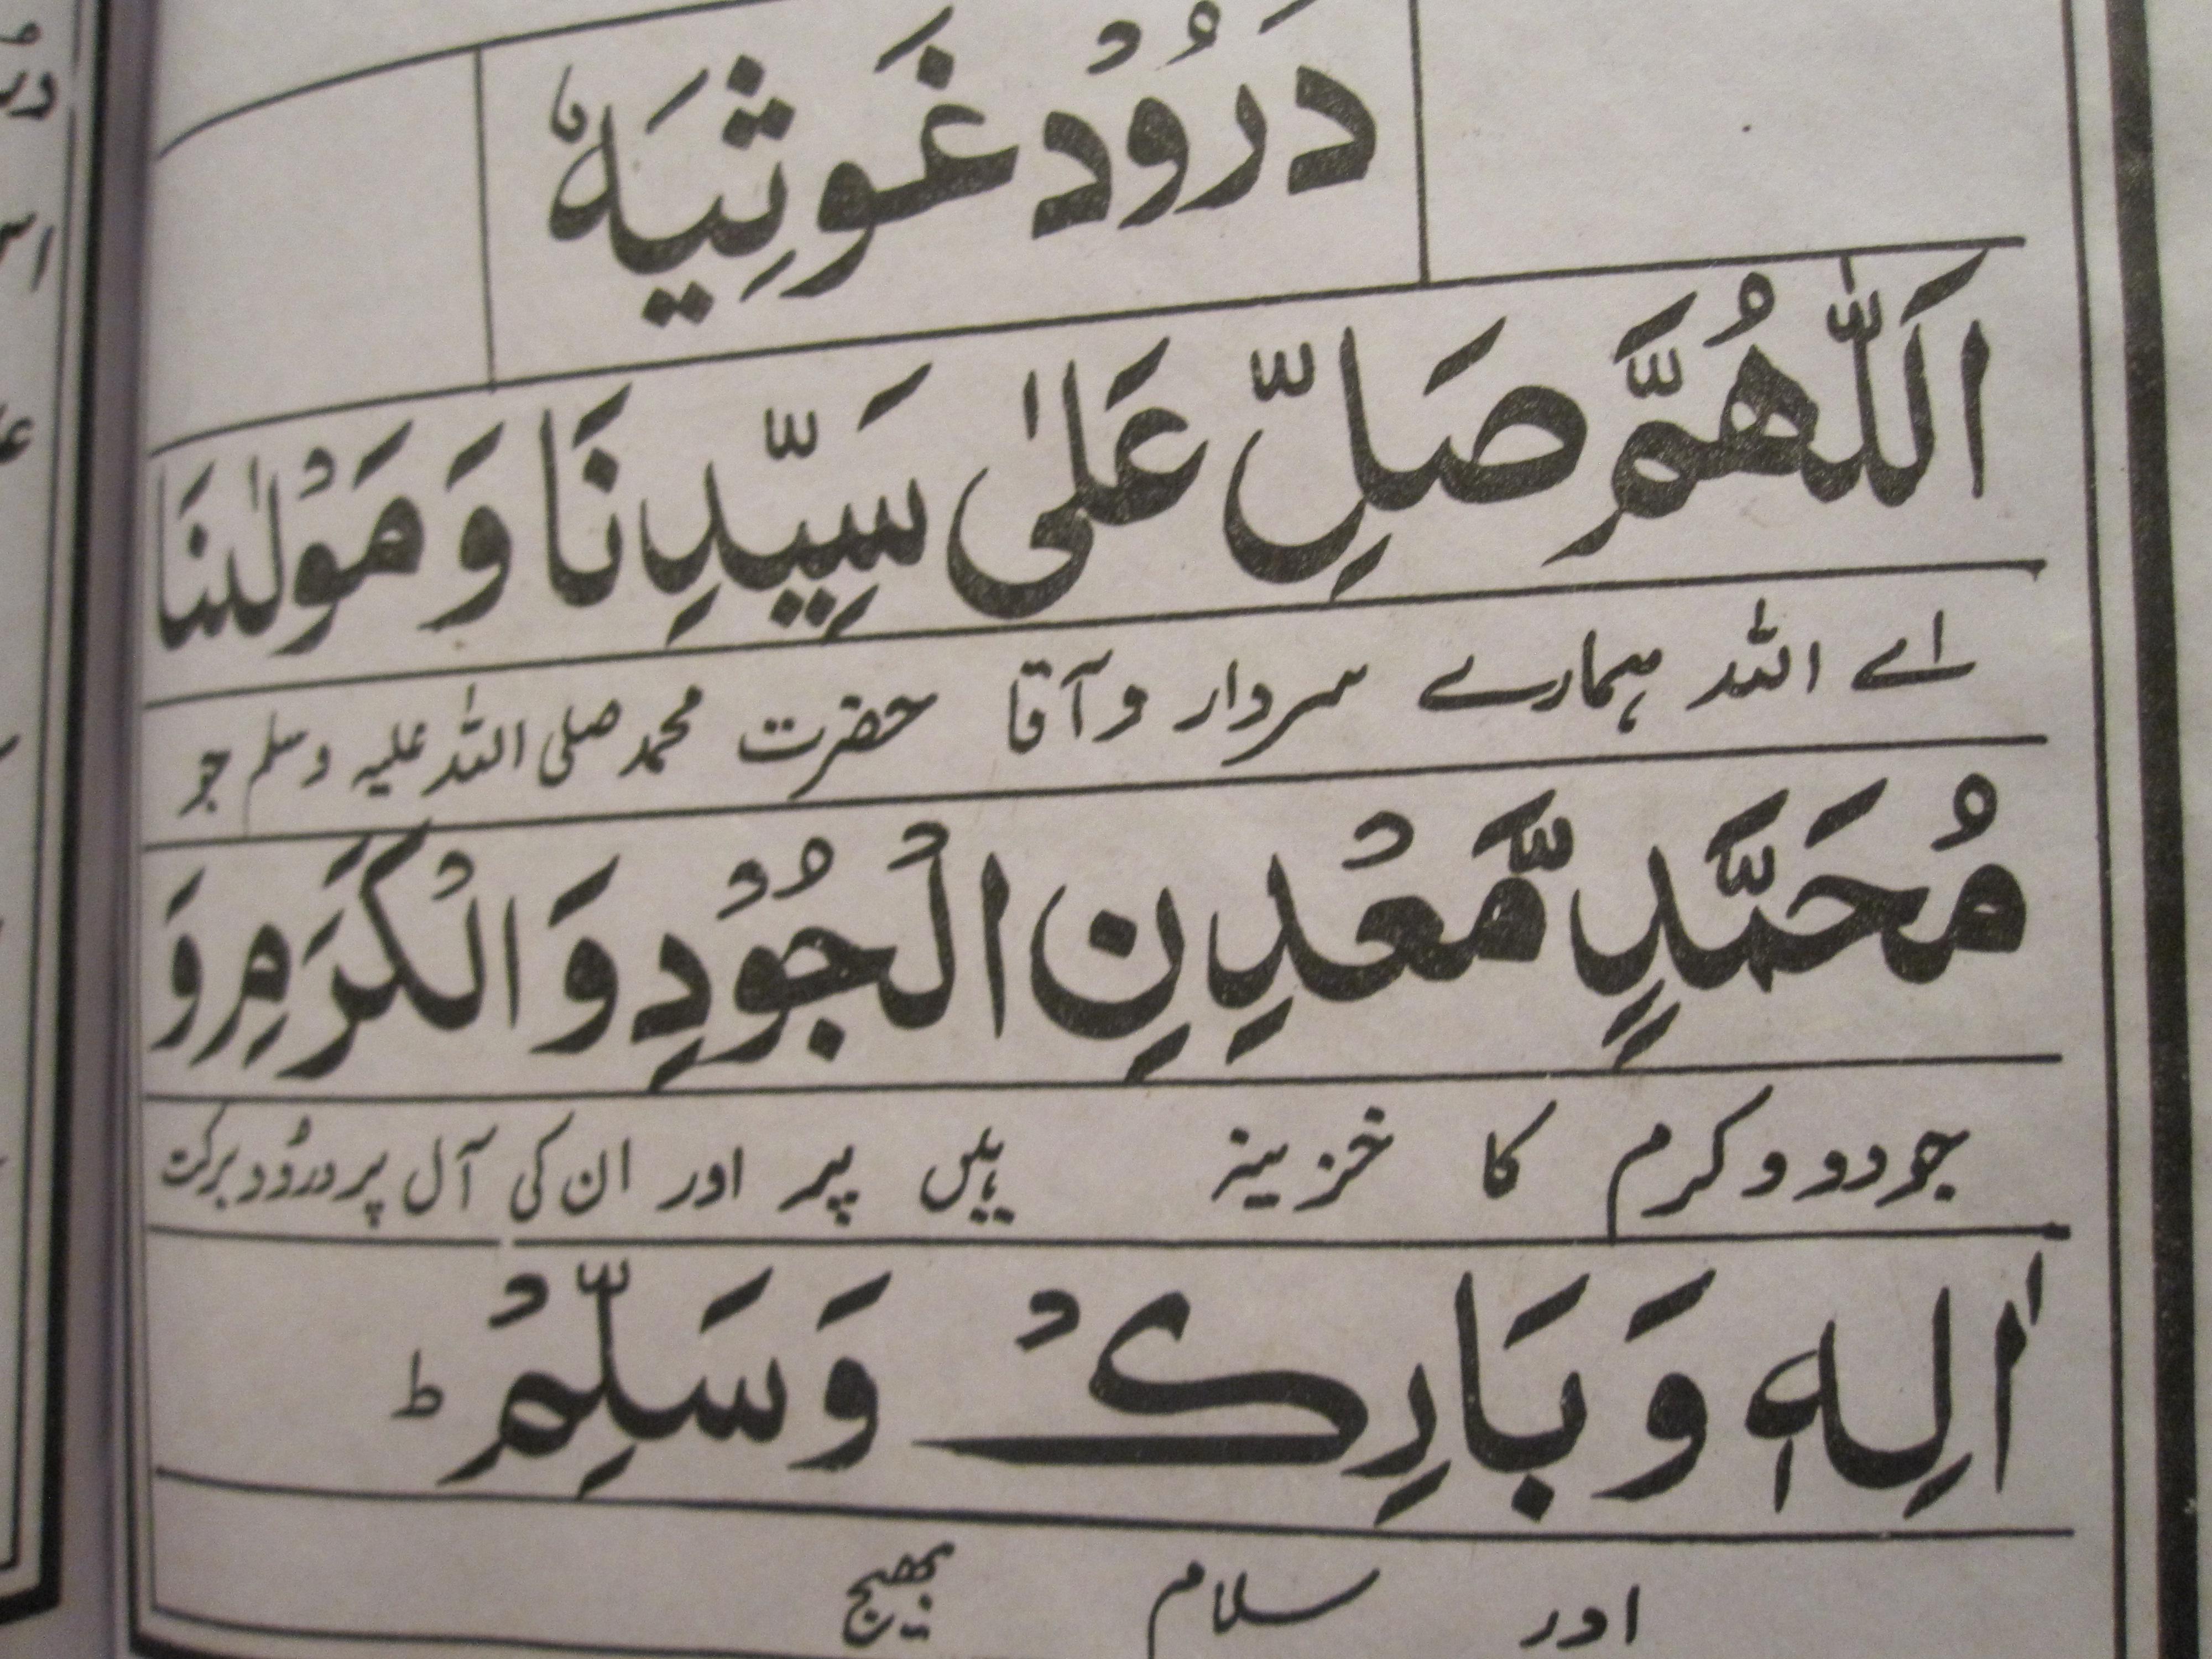 دَرُوْدِ غَوثِیَہْ
اَللّٰھُمَّ صَلِّ عَلٰی سَیِّدِنَا وَ مَوْلٰنَا
اے اللہ ہمارے سردار و آقا حضرت محمد صلی اللہ علیہ وسلم جو
مُحَمَّدٍ مَّعْدِنِ الْجُوْدِ وَالْکَرَمِ وَ
جودو و کرم کا خزینہ ہیں پر اور ان کی آل پر درُود برکت
اٰلِہٖ وَ بَارِکْ وَسَلِّمْ ط
اور سلام بھیج